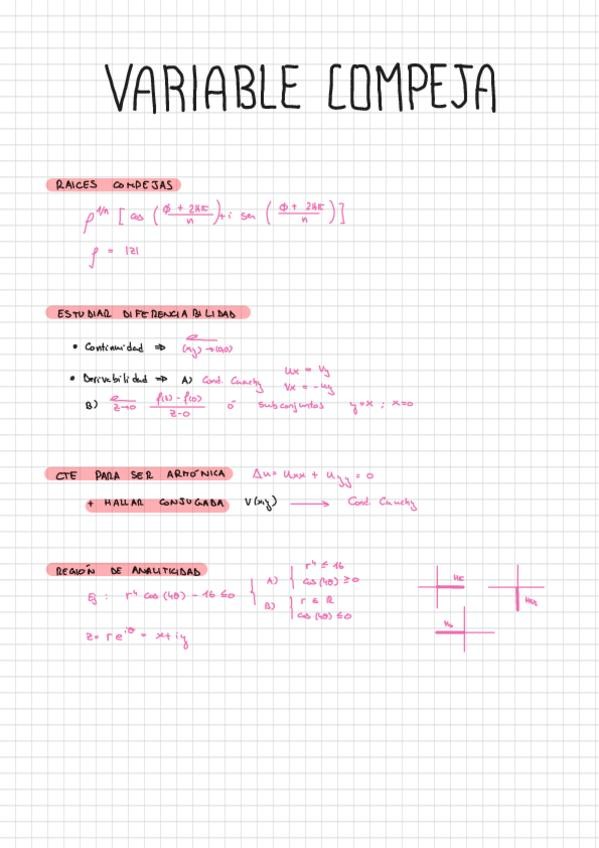 VARIABLE COMPEJA
RAICES COMPEJAS
ρ^1/n [ cos ( (ϕ + 2kπ)/n ) + i sen ( (ϕ + 2kπ)/n ) ]
ρ = |z|
ESTUDIAR DIFERENCIABILIDAD
• Continuidad ⇒ (x,y) → (0,0)
• Derivabilidad ⇒ A) Cond. Cauchy ux = vy
vx = -uy
B) z→0 (f(z) - f(0))/(z-0) ó subconjuntos y=x ; x=0
CTE PARA SER ARMÓNICA Δu = uxx + uyy = 0
+ HALLAR CONJUGADA V(x,y) ⟶ Cond. Cauchy
REGIÓN DE ANALITICIDAD
Ej : r⁴ cos (4θ) - 16 ≤0 { A) { r⁴ ≤ 16
cos (4θ) ≥ 0
B) { r ∈ R
cos (4θ) ≤0
z = r e^iθ = x+iy